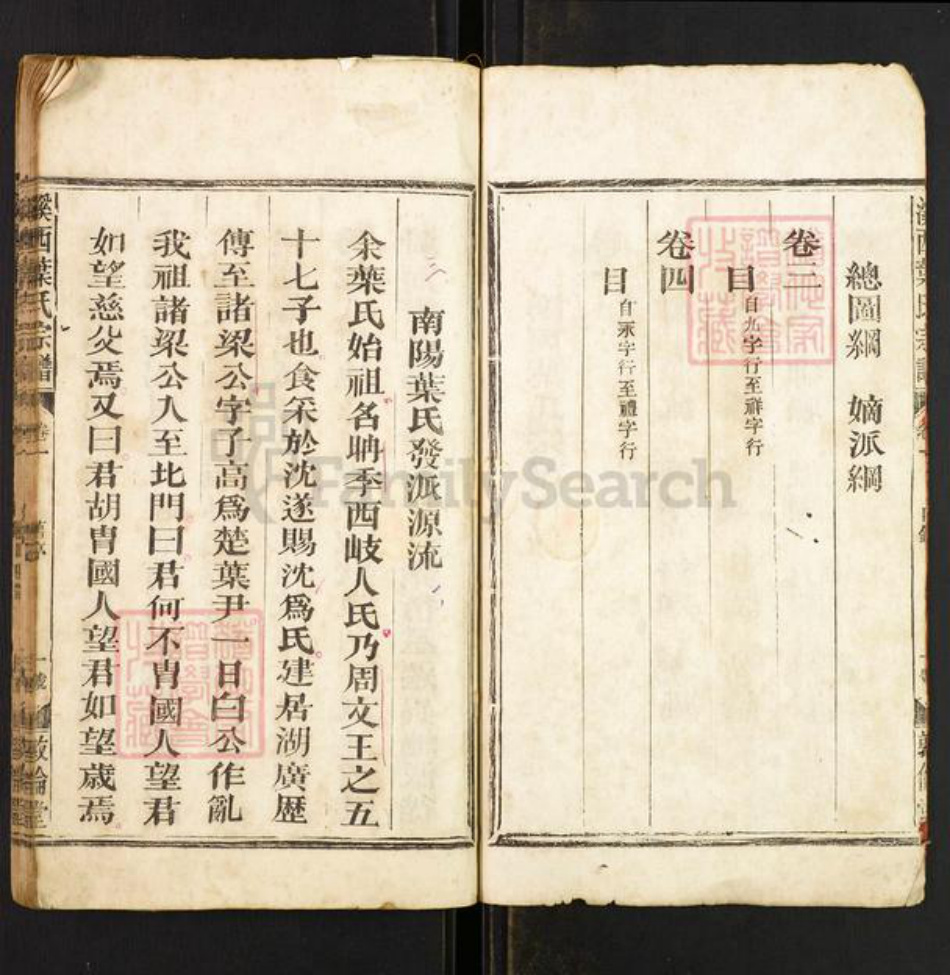 總圖綱 嫡派綱
卷三
目自九字行至祥字行
卷四
目自永字行至禮字行
南陽葉氏發派源流
余葉氏始祖名聃季西岐人氏乃周文王之五
十七子也食采於沈遂賜沈爲氏建居湖廣歷
傳至諸梁公字子高爲楚葉尹一日白公作亂
我祖諸梁公入至北門曰君何不胄國人望君
如望慈父焉又曰君胡胄國人望君如望歲焉
溪西葉氏宗譜
卷一
敦倫堂
FamilySearch